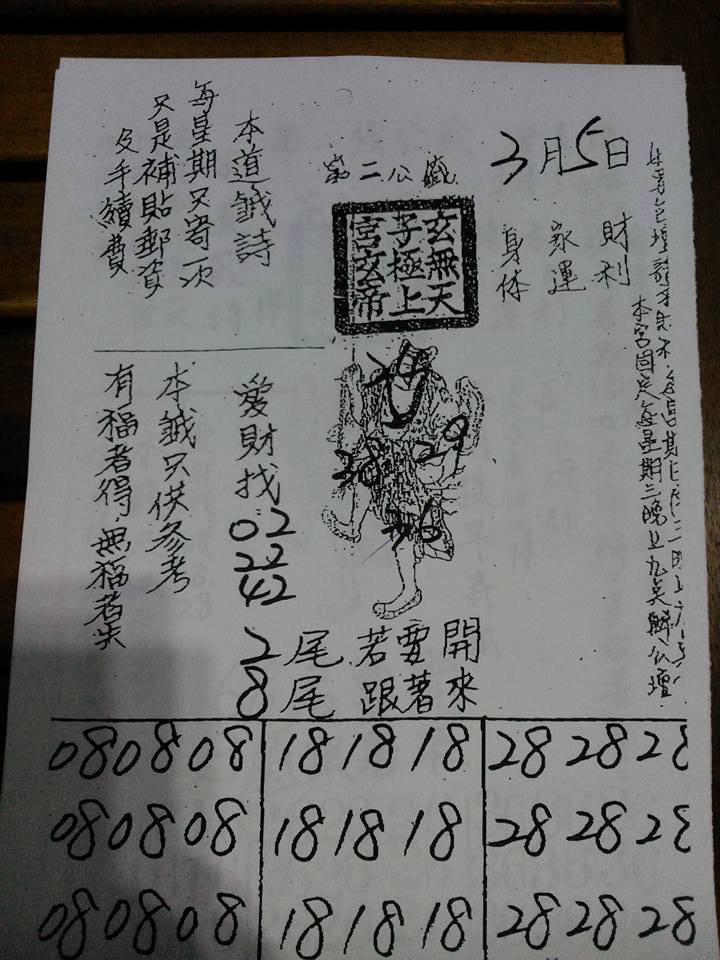 3月5日
財利
家運
身体
本宮固定每星期三晚上九点辦公壇
第二公籤
玄無天
子極上
宮玄帝
本道籤詩
每星期只寄一次
只是補貼郵資
及手續費
28
29
36
愛財找
02
22
42
本籤只供參考
有福者得,無福者失
2尾若要開
8尾跟著來
080808
181818
282828
080808
181818
282828
080808
181818
282828